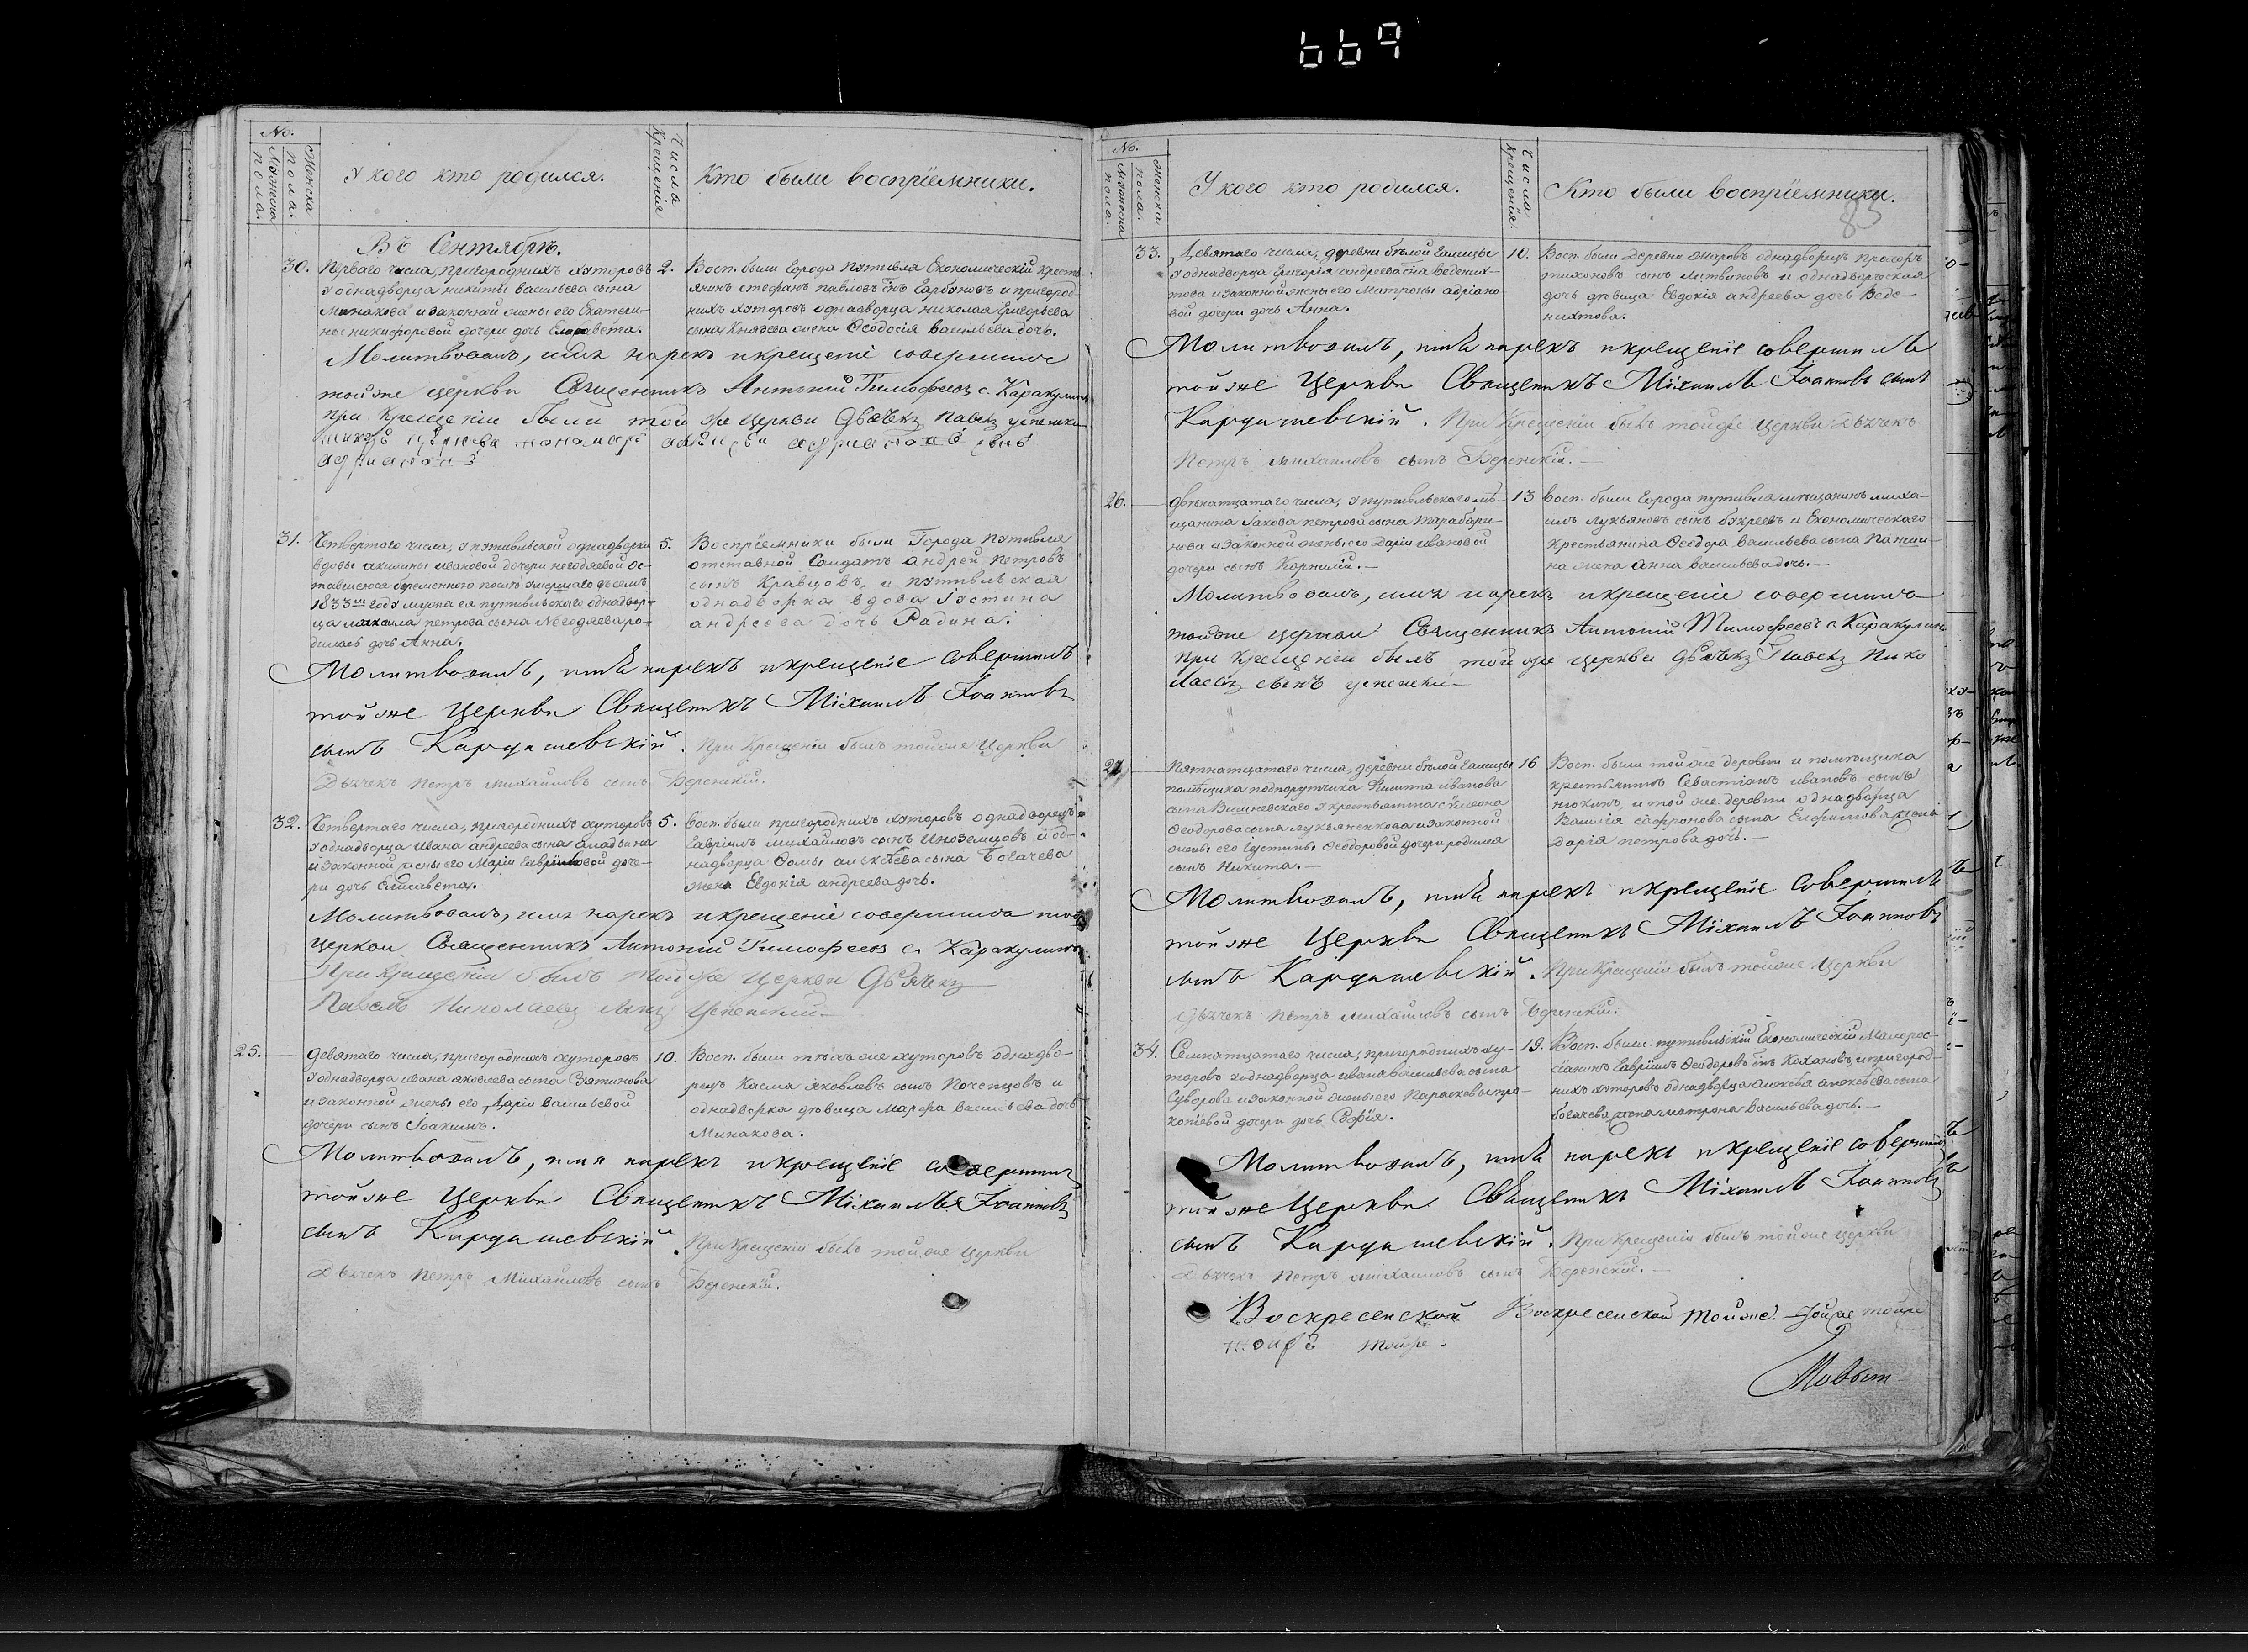 669
No.
Мужеска пола.
Женска пола.
У кого кто родился.
Числа Крещенія
Кто были воспріемники.
Въ Сентябрѣ.
30. Перваго числа, пригородныхъ хуторовъ
у однадворца никиты васильева сына
минакова и законной жены его Екатери-
ны никифоровой дочери дочь Елисавета.
2. Восп. были города путивля Економическій кресть-
янинъ стефанъ павловъ снъ Горбуновъ и пригород-
ныхъ хуторовъ однадворца николая григорьева
сына Князева жена Ѳеодосія васильева дочь.
Молитвовалъ, имя нарекъ и крещеніе совершилъ
тойже церкви Священникъ Антоній Тимофеевъ с. Каракулинъ
при крещеніи были той же церкви Дьячекъ Павелъ
пономарь
31. Четвертаго числа, у путивльской однадворки
вдовы акилины ивановой дочери негодяевой ос-
тавшеюся беременною послѣ умершаго въ семъ
1833мъ году мужа ея путивльскаго однадвор-
ца михаила петрова сына Негодяева ро-
дилась дочь Анна.
5. Воспріемники были Города Путивля
отставной Солдатъ андрей петровъ
сынъ Кравцовъ, и путивльская
однадворка вдова Іустина
андреева дочь Радина.
Молитвовалъ, имя нарекъ и крещеніе совершилъ
тойже Церкви Священникъ Міхаилъ Іоанновъ
сынъ Кардашевскій. При Крещеніи былъ тойже Церкви
Дьячекъ Петръ михайловъ сынъ Беренскій.
32. Четвертаго числа, пригородныхъ хуторовъ
у однадворца ивана андреева сына
и законной жены его Маріи Гавріиловой доче-
ри дочь Елисавета.
5. Восп. были пригородныхъ хуторовъ однадворецъ
Гавріилъ михайловъ сынъ Иноземцовъ и од-
надворца Ѳомы алексѣева сына Богачева
жена Евдокія андреева дочь.
Молитвовалъ, имя нарекъ и крещеніе совершилъ той
церкви Священникъ Антоній Тимофеевъ с. Каракулинъ
При Крещеніи былъ той же Церкви Дьячекъ
Павелъ Николаевъ сынъ Успенскій
25. Девятаго числа, пригородныхъ хуторовъ
у однадворца ивана яковлева сына
и законной жены его Даріи васильевой
дочери сынъ Іоакимъ.
10. Восп. были тѣхъ же хуторовъ однадво-
рецъ Касма яковлевъ сынъ Почепцовъ и
однадворка дѣвица Марѳа васильева дочь
Минакова.
Молитвовалъ, имя нарекъ и крещеніе совершилъ
тойже Церкви Священникъ Міхаилъ Іоанновъ
сынъ Кардашевскій. При Крещеніи былъ тойже Церкви
Дьячекъ Петръ Михайловъ сынъ Беренскій.
No.
Мужеска пола.
Женска пола.
У кого кто родился.
Числа Крещенія.
Кто были воспріемники.
85
33. Девятаго числа, деревни бѣлой Галицы
у однадворца григорія андреева сна Ведених-
това и законной жены его Матроны адріано-
вой дочери дочь Анна.
10. Восп. были деревни однадворецъ Прохоръ
тихоновъ сынъ Литвиновъ и однадворческая
дочь дѣвица Евдокія андреева дочь Веде-
нихтова.
Молитвовалъ, имя нарекъ и крещеніе совершилъ
тойже Церкви Священникъ Міхаилъ Іоанновъ сынъ
Кардашевскій. При Крещеніи былъ тойже Церкви Дьячекъ
Петръ михаиловъ сынъ Беренскій.
26. Двѣнатцатаго числа, у путивльскаго мѣ-
щанина Іакова петрова сына
и законной жены его Даріи ивановой
дочери сынъ Корнилій.
13 Восп. были Города путивля мѣщанинъ миха-
илъ лукьяновъ сынъ букреевъ и Економическаго
крестьянина Ѳеодора васильева сына
жена анна васильева дочь.
Молитвовалъ, имя нарекъ и крещеніе совершилъ
тойже церкви Священникъ Антоній Тимофеевъ с. Каракулинъ
при Крещеніи былъ той же церкви Дьячекъ Павелъ Нико
лаевъ сынъ успенскій
27. Пятнатцатаго числа, деревни бѣлой Галицы
помѣщика подпорутчика Филиппа иванова
сына Вишневскаго у крестьянина сѵмеона
Ѳеодорова сына лукьяненкова и законной
жены его Іустины Ѳеодоровой дочери родился
сынъ Никита.
16 Восп. были тойже деревни и помѣщика
крестьянинъ Севастіанъ ивановъ сынъ
и той же деревни однадворца
Василія сафронова сына жена
Дарія петрова дочь.
Молитвовалъ, имя нарекъ и крещеніе совершилъ
тойже Церкви Священникъ Міхаилъ Іоанновъ
сынъ Кардашевскій. При Крещеніи былъ тойже Церкви
Дьячекъ Петръ Михаиловъ сынъ Беренскій.
34. Семнатцатаго числа, пригородныхъ ху-
торовъ у однадворца ивана васильева сына
Суворова и законной жены его Параскевы про-
копіевой дочери дочь Софія.
19. Восп. были: путивльскій Економическій Малорос-
сіанинъ Гавріилъ Ѳеодоровъ снъ Кохановъ, и пригород-
ныхъ хуторовъ однадворца алексѣя алексѣева сына
богачева жена матрона васильева дочь.
Молитвовалъ, имя нарекъ и крещеніе совершилъ
тойже Церкви Священникъ Міхаилъ Іоанновъ
сынъ Кардашевскій. При Крещеніи былъ тойже Церкви
Дьячекъ Петръ михаиловъ сынъ Беренскій.
Воскресенской Воскресенской тойже тойже
тойже